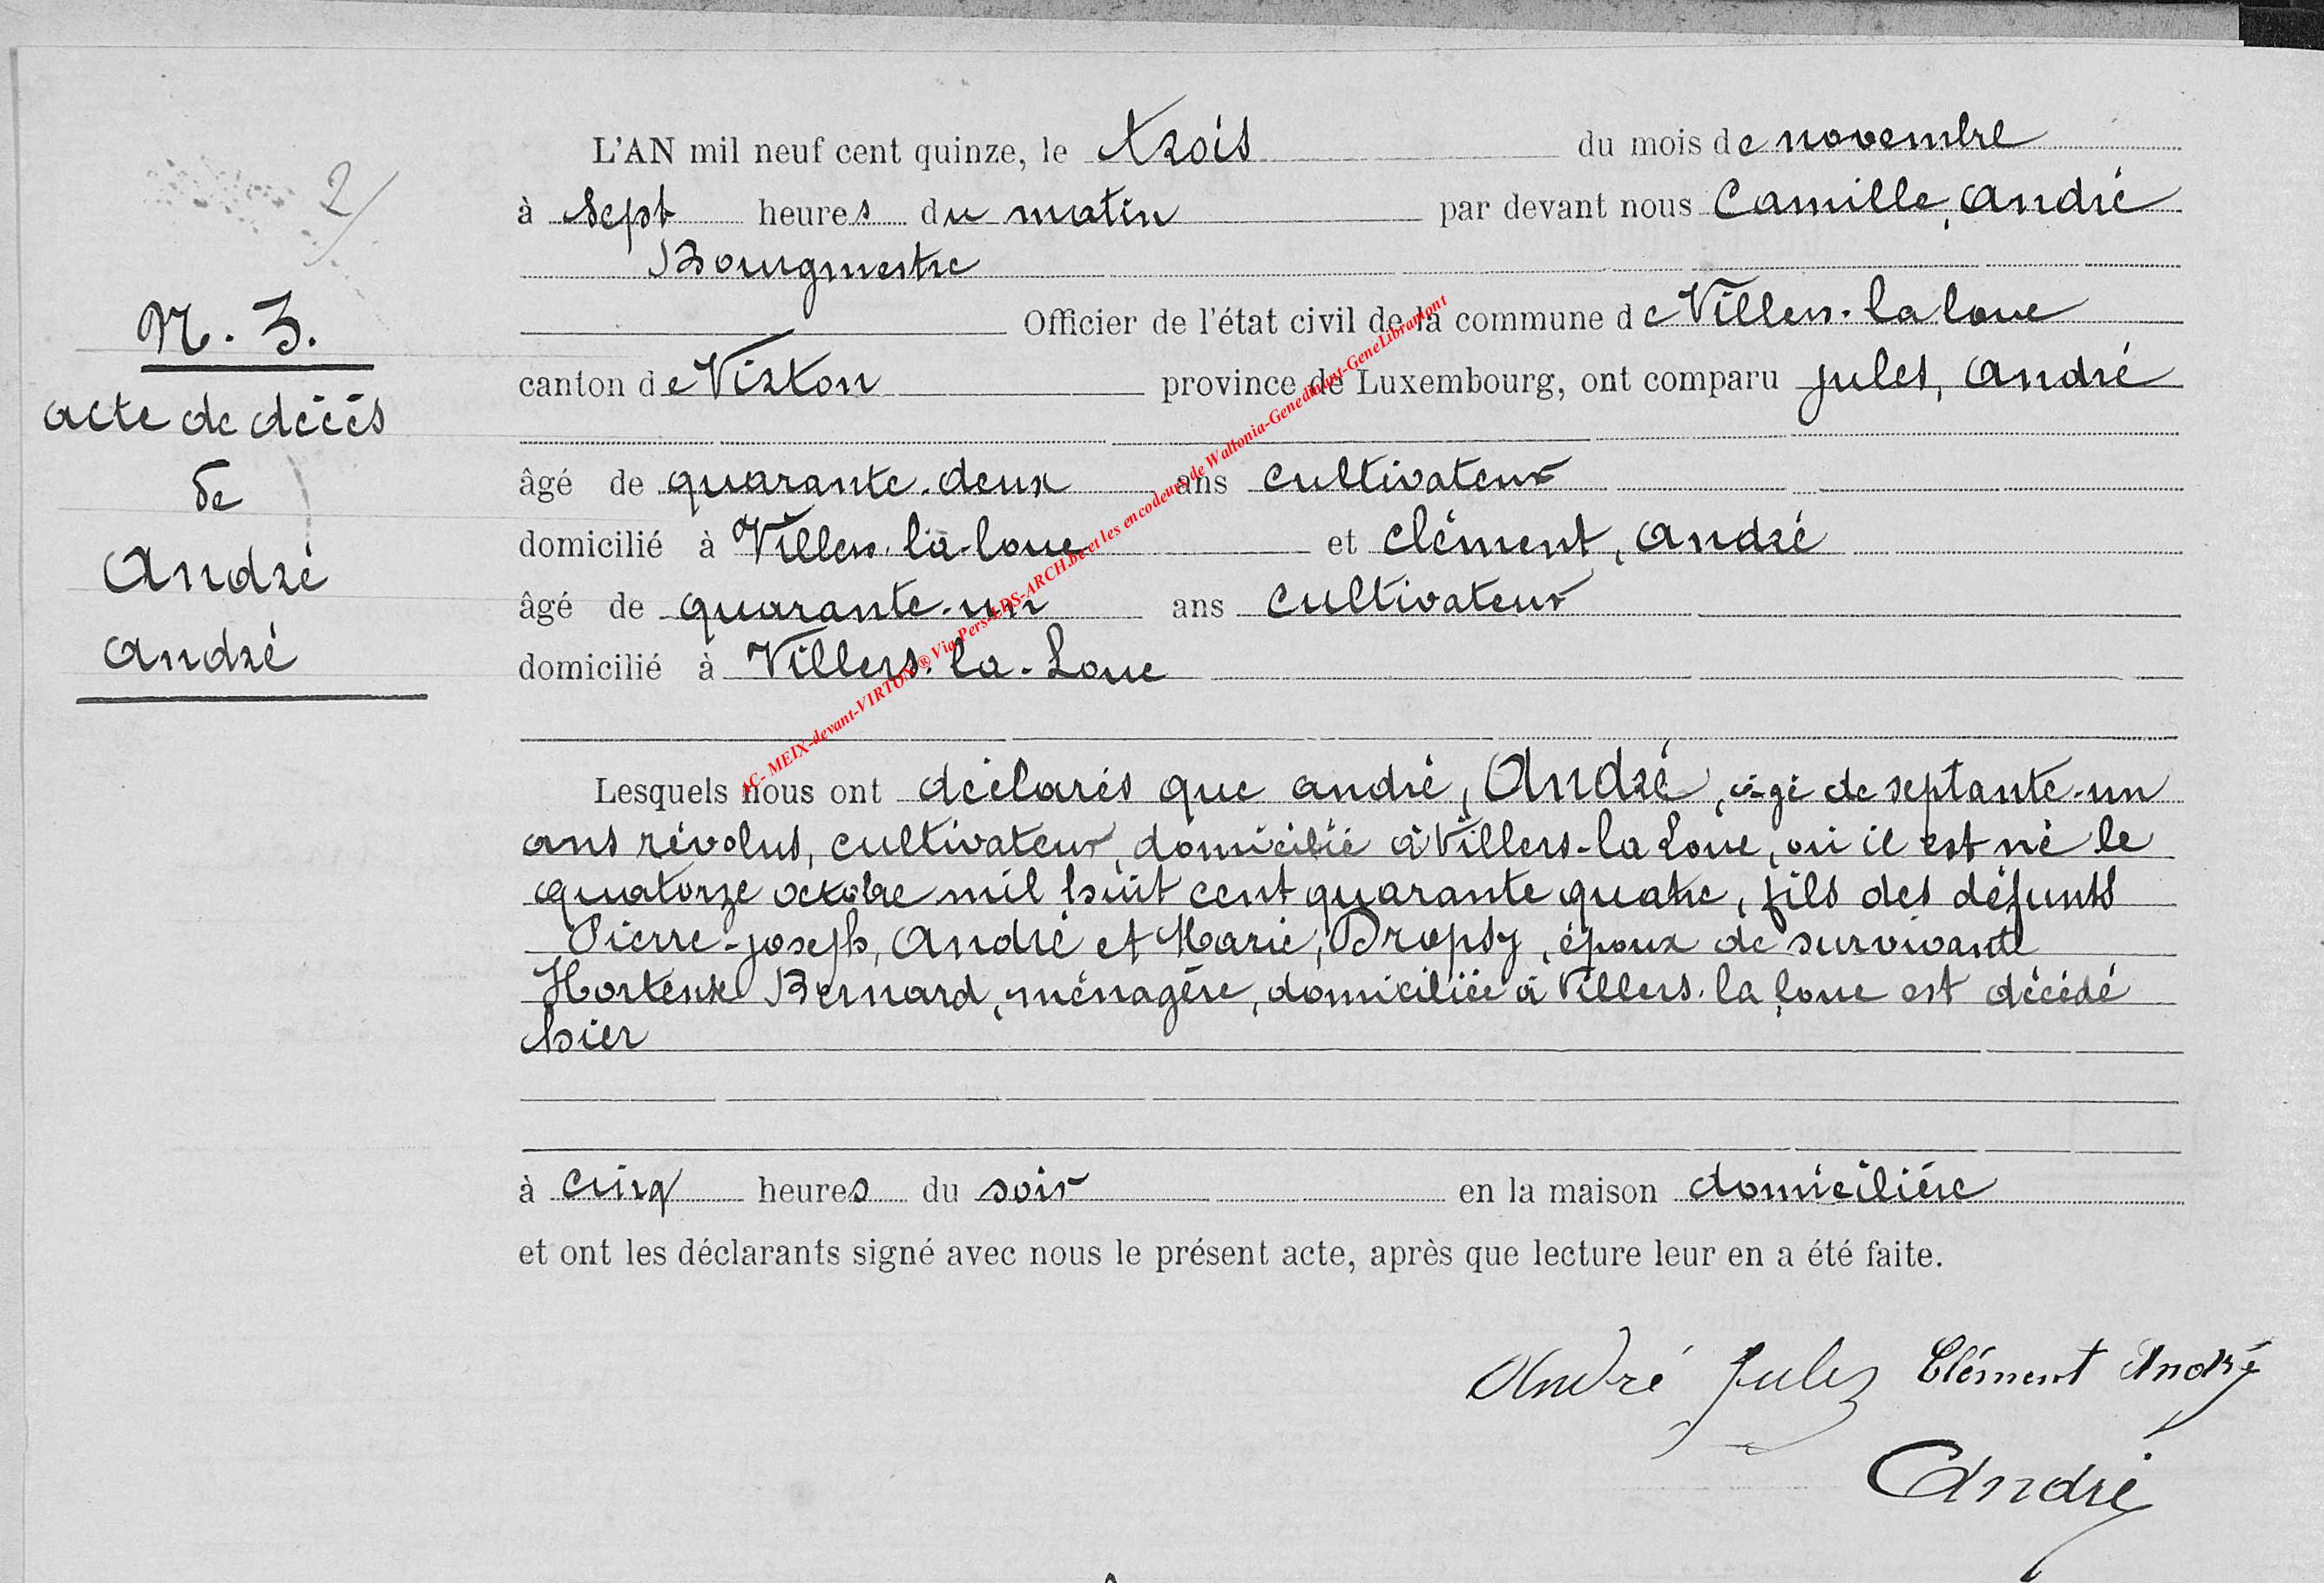 2/
N. 3.
acte de décès
de
André
André
L'AN mil neuf cent quinze, le trois du mois de novembre
à sept heures du matin par devant nous Camille, André
Bourgmestre
Officier de l'état civil de la commune de Villers-la loue
canton de Virton province de Luxembourg, ont comparu jules, André
âgé de quarante-deux ans cultivateur
domicilié à Villers-la-loue et clément, André
âgé de quarante-un ans cultivateur
domicilié à Villers-la-Loue
Lesquels nous ont déclarés que andré, André, âgé de septante-un
ans révolus, cultivateur, domicilié à Villers-la Loue, où il est né le
quatorze octobre mil huit cent quarante quatre, fils des défunts
Pierre-joseph, André et Marie, Dropsy, époux de survivante
Hortense Bernard, ménagère, domiciliée à Villers-la loue est décédé
hier
à cinq heures du soir en la maison domicilière
et ont les déclarants signé avec nous le présent acte, après que lecture leur en a été faite.
André Jules Clément André
CAndré
AC- MEIX-devant-VIRTON ® Via Pers-LDS-ARCH.be et les encodeurs de Wallonia-Genedinant-GeneLibramont